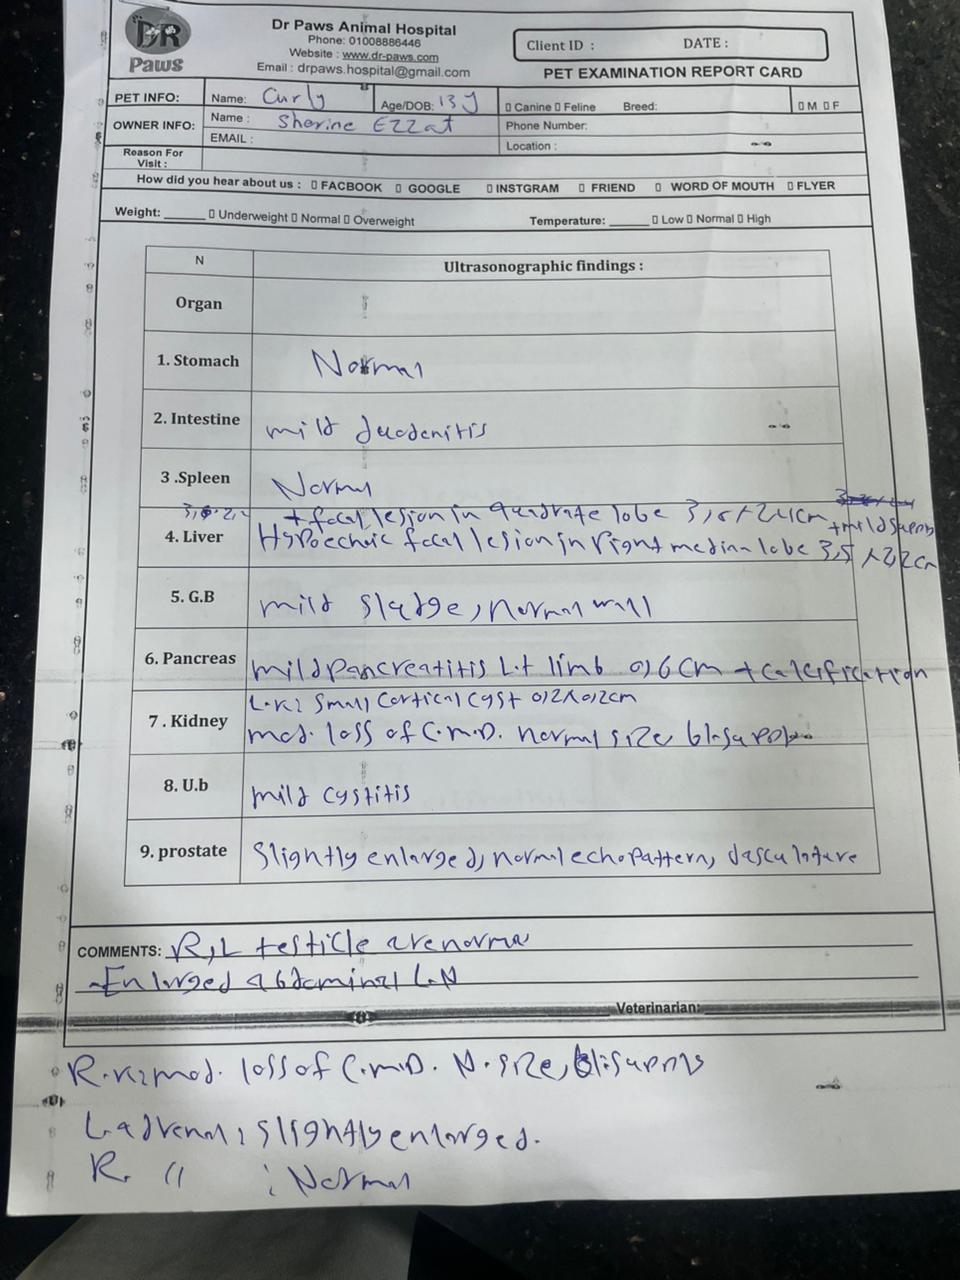 DR
Paws
Dr Paws Animal Hospital
Phone: 01008886446
Website : www.dr-paws.com
Email : drpaws.hospital@gmail.com
Client ID : DATE :
PET EXAMINATION REPORT CARD
PET INFO: Name: Curly Age/DOB: 13 y ▯ Canine ▯ Feline Breed: ▯ M ▯ F
OWNER INFO: Name : Sherine Ezzat Phone Number:
EMAIL : Location :
Reason For Visit :
How did you hear about us : ▯ FACBOOK ▯ GOOGLE ▯ INSTGRAM ▯ FRIEND ▯ WORD OF MOUTH ▯ FLYER
Weight: ______ ▯ Underweight ▯ Normal ▯ Overweight Temperature: ______ ▯ Low ▯ Normal ▯ High
N Ultrasonographic findings :
Organ
1. Stomach Normal
2. Intestine mild duodenitis
3 .Spleen Normal
+ focal lesion in quadrate lobe
4. Liver Hypoechoic focal lesion in right median lobe 3,5 x 2,2 cm
5. G.B mild sludge, normal wall
6. Pancreas mild pancreatitis Lt limb 0,6 cm + calcification
L.K: Small Cortical Cyst 0,2 x 0,2 cm
7 . Kidney mod. loss of C.M.D. normal size
8. U.b mild cystitis
9. prostate Slightly enlarged, normal echo pattern, vasculature
COMMENTS: R, L testicle are normal
- Enlarged abdominal L.N
Veterinarian:
R.K: mod. loss of C.M.D. N. size,
L. adrenal : slightly enlarged.
R. " : Normal